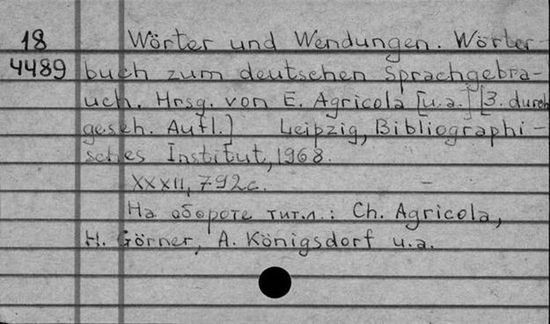 18 Wörter und Wendungen. Wörter-
4489 buch zum deutschen Sprachgebra-
uch. Hrsg. von E. Agricola [u.a.] [3. durch
geseh. Aufl.] Leipzig, Bibliographi-
sches Institut, 1968.
XXXII, 792 с.
На обороте тит.л.: Ch. Agricola,
H. Görner, A. Königsdorf u.a.